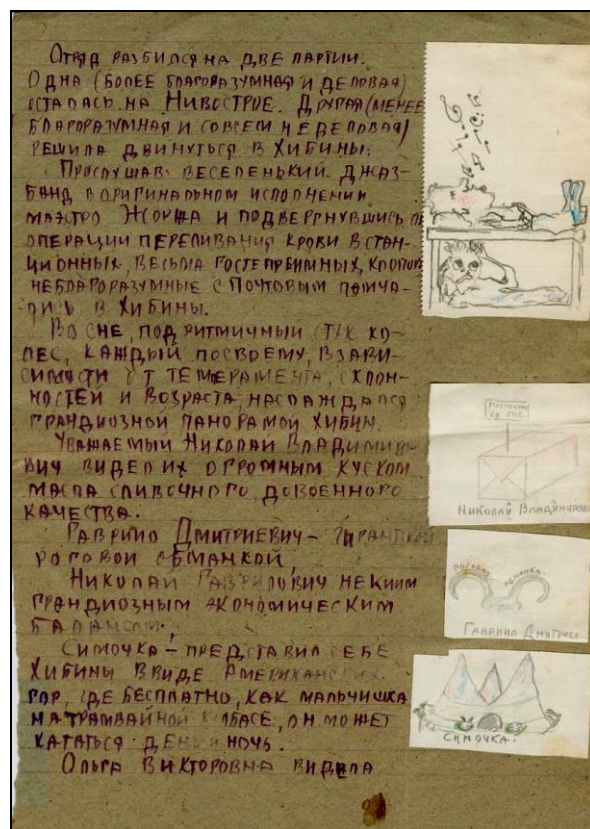 Отряд разбился на две партии.
Одна (более благоразумная и деловая)
осталась на Нивострое. Другая (менее
благоразумная и совсем не деловая)
решила двинуться в Хибины.
Прослушав веселенький джаз-
банд в оригинальном исполнении
маэстро Жоржа и подвергнувшись
операции переливания крови в стан-
ционных, весьма гостеприимных, клопов
неблагоразумные с почтовым помча-
лись в Хибины.
Во сне, под ритмичный стук ко-
лес, каждый посвоему, взави-
симости от темперамента, склон-
ностей и возраста, наслаждался
грандиозной панорамой Хибин.
Уважаемый Николай Владимир-
вич видел их огромным куском
масла сливочного, довоенного
качества.
Гаврило Дмитриевич –
роговой обманкой,
Николай Гаврилович неким
грандиозным экономическим
балансом.
Симочка – представил себе
Хибины ввиде Американских
гор, где бесплатно, как мальчишка
на трамвайной колбасе, он может
кататься день и ночь.
Ольга Викторовна видела
Николай Владимирови
роговая обманка.
Гаврило Дмитриев
Симочка.